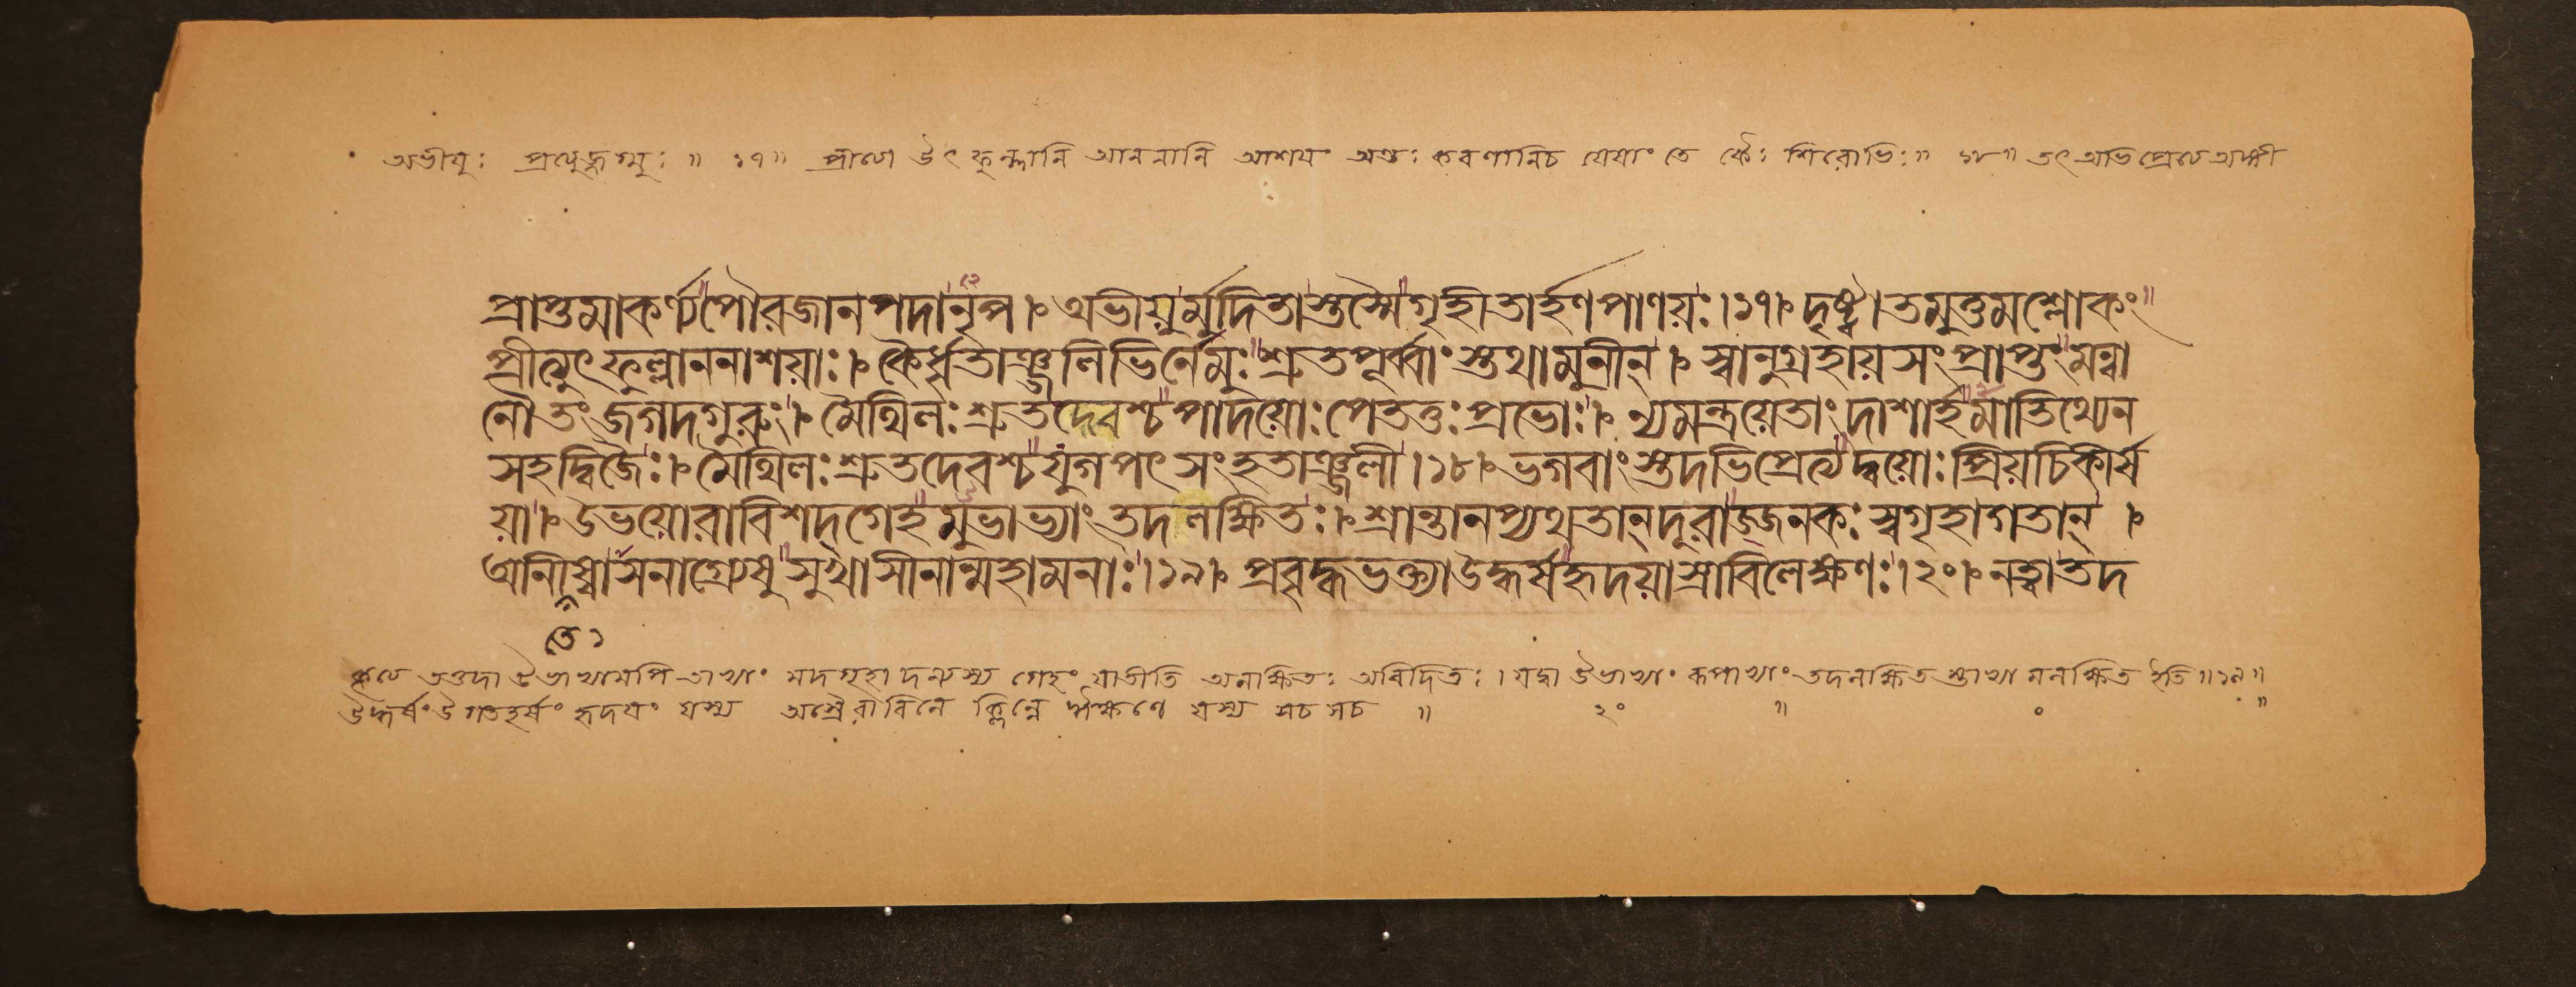 অভীযুঃ প্রত্যুজ্জগ্মুঃ ॥ ১৭॥ প্রীত্যা উৎফুল্লানি আননানি আশয়ং অন্তঃ করণানিচ যেষাং তে কৈঃ শিরোভিঃ॥ ১৮॥ তৎ অভিপ্রেত্য অঙ্গী
প্রাপ্তমাকর্ণ্যপৌরজানপদানৃপ । অভীয়ুর্মুদিতাস্তস্মৈগৃহীতার্হণপাণয়ঃ।১৭। দৃষ্ট্বাতমুত্তমশ্লোকং
প্রীত্যুৎফুল্লাননাশয়াঃ। কৈর্ধৃতাঞ্জলিভির্নেমুঃশ্রুতপূর্ব্বাংস্তথামুনীন্। স্বানুগ্রহায়সংপ্রাপ্তংমন্বা
নৌতং জগদ্গুরুং। মৈথিলঃশ্রুতদেবশ্চপাদয়োঃপেততুঃপ্রভোঃ। ন্যমন্ত্রয়েতাংদাশার্হমাতিথ্যেন
সহদ্বিজৈঃ। মৈথিলঃশ্রুতদেবশ্চযুগপৎসংহতাঞ্জলী।১৮। ভগবাংস্তদভিপ্রেত্যদ্বয়োঃপ্রিয়চিকীর্ষ
য়া। উভয়োরাবিশদ্গেহমুভাভ্যাংতদলক্ষিতঃ। শ্রান্তানপ্যথতান্দূরাজ্জনকঃস্বগৃহাগতান্ ।
আনীষ্বাসনাগ্রেষুসুখাসীনান্মহামনাঃ।১৯। প্রবৃদ্ধভক্ত্যাউদ্ধর্ষহৃদয়াস্রাবিলেক্ষণঃ।২০। নত্বাতদ
তে ১
কৃত্য ততদা উভাভ্যামপি তাভ্যাং মদগৃহাদন্যস্য গেহং যাতীতি অলক্ষিতঃ অবিদিতঃ। যদ্বা উভাভ্যাং রূপাভ্যাং তদলক্ষিত স্তাভ্যা মলক্ষিত ইতি॥১৯॥
উদ্ধর্ষং উগতহর্ষং হৃদয়ং যস্য অশ্রৈরাবিলে ক্লিন্নে ঈক্ষণে যস্য সচ সচ ॥ ২০ ॥